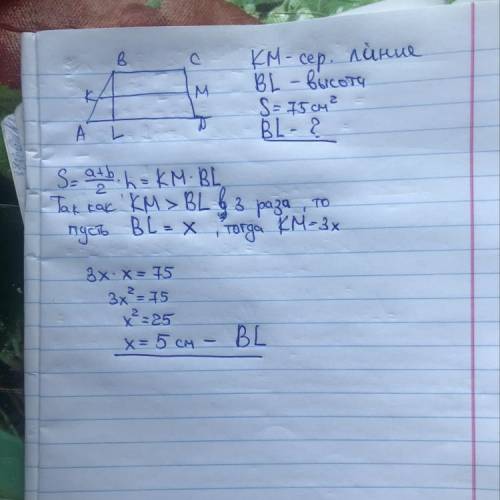 B C
KM - сер. линие
K M
BL - высота
A L D
S = 75 см²
BL - ?
S = a+b/2 · h = KM · BL
Так как KM > BL в 3 раза, то
пусть BL = x, тогда KM = 3x
3x · x = 75
3x² = 75
x² = 25
x = 5 см - BL